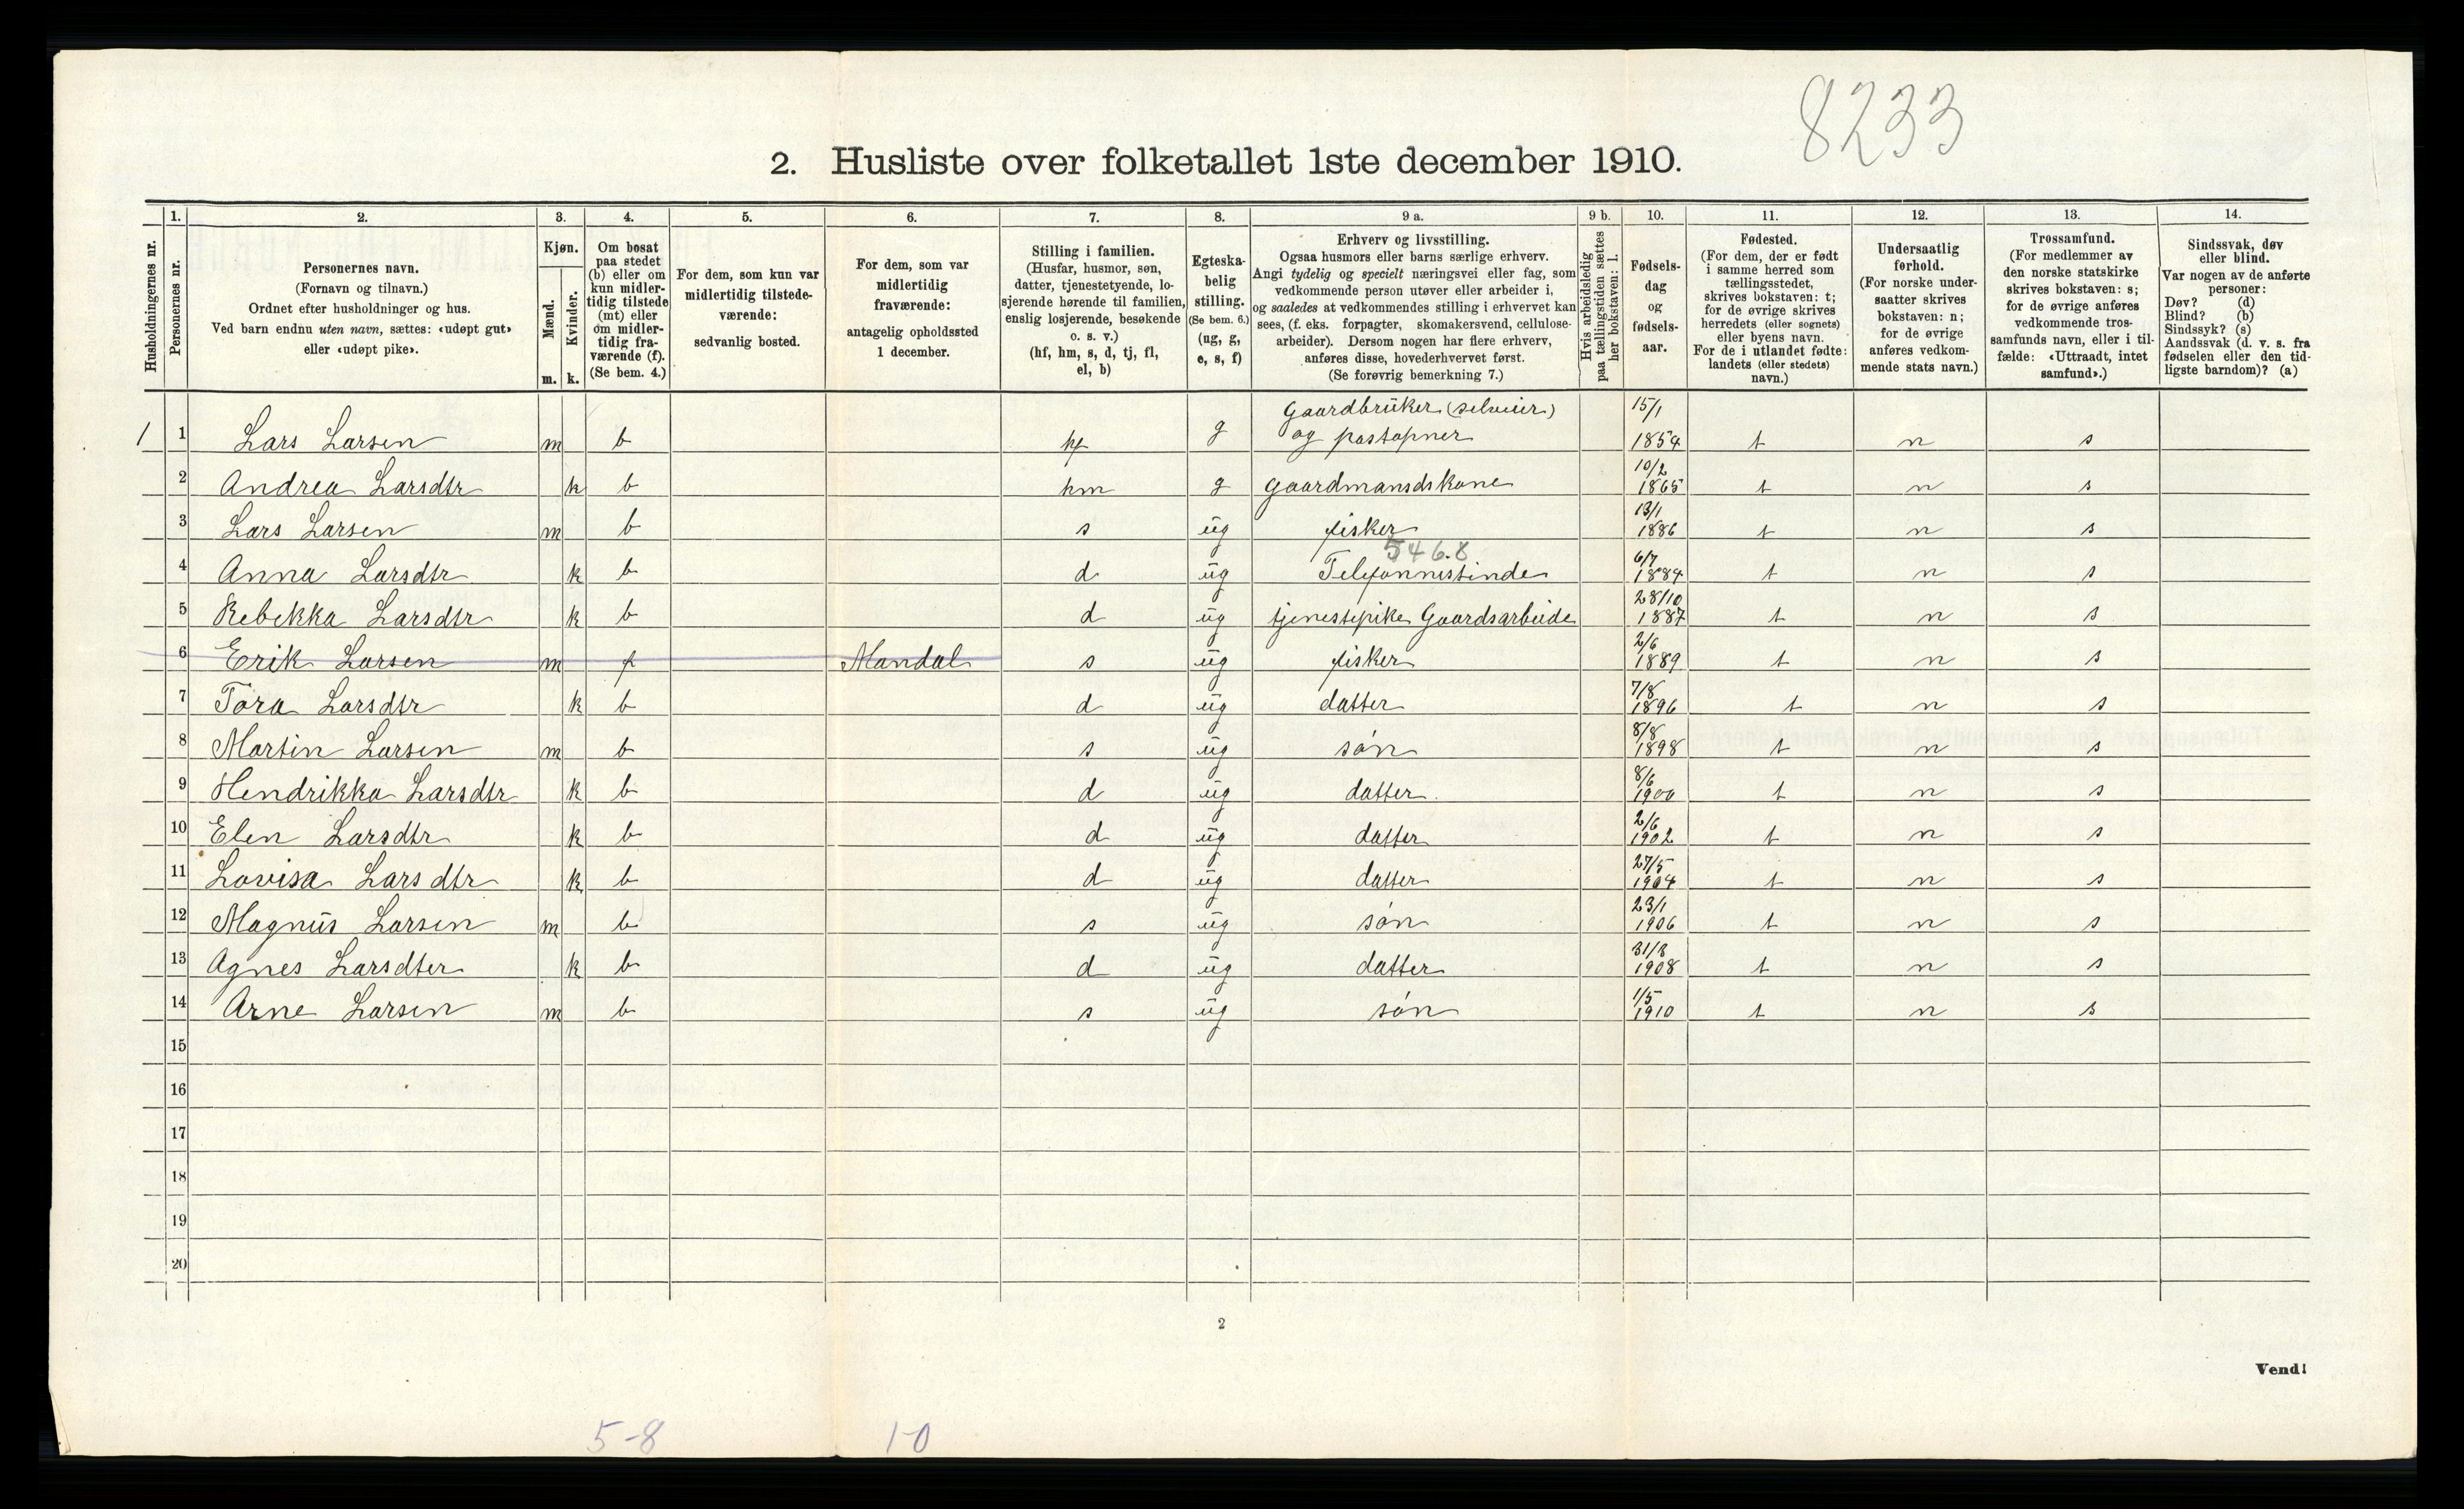 8233
2. Husliste over folketallet 1ste december 1910.
1. 2. 3. 4. 5. 6. 7. 8. 9 a. 9 b. 10. 11. 12. 13. 14.
Husholdningernes nr.
Personernes nr.
Personernes navn.
(Fornavn og tilnavn.)
Ordnet efter husholdninger og hus.
Ved barn endnu uten navn, sættes: «udøpt gut»
eller «udøpt pike».
Kjøn.
Mænd.
Kvinder.
m. k.
Om bosat
paa stedet
(b) eller om
kun midler-
tidig tilstede
(mt) eller
om midler-
tidig fra-
værende (f).
(Se bem. 4.)
For dem, som kun var
midlertidig tilstede-
værende:
sedvanlig bosted.
For dem, som var
midlertidig
fraværende:
antagelig opholdssted
1 december.
Stilling i familien.
(Husfar, husmor, søn,
datter, tjenestetyende, lo-
sjerende hørende til familien,
enslig losjerende, besøkende
o. s. v.)
(hf, hm, s, d, tj, fl,
el, b)
Egteska-
belig
stilling.
(Se bem. 6.)
(ug, g,
e, s, f)
Erhverv og livsstilling.
Ogsaa husmors eller barns særlige erhverv.
Angi tydelig og specielt næringsvei eller fag, som
vedkommende person utøver eller arbeider i,
og saaledes at vedkommendes stilling i erhvervet kan
sees, (f. eks. forpagter, skomakersvend, cellulose-
arbeider). Dersom nogen har flere erhverv,
anføres disse, hovederhvervet først.
(Se forøvrig bemerkning 7.)
Hvis arbeidsledig
paa tællingstiden sættes
her bokstaven: l.
Fødsels-
dag
og
fødsels-
aar.
Fødested.
(For dem, der er født
i samme herred som
tællingsstedet,
skrives bokstaven: t;
for de øvrige skrives
herredets (eller sognets)
eller byens navn.
For de i utlandet fødte:
landets (eller stedets)
navn.)
Undersaatlig
forhold.
(For norske under-
saatter skrives
bokstaven: n;
for de øvrige
anføres vedkom-
mende stats navn.)
Trossamfund.
(For medlemmer av
den norske statskirke
skrives bokstaven: s;
for de øvrige anføres
vedkommende tros-
samfunds navn, eller i til-
fælde: «Uttraadt, intet
samfund».)
Sindssvak, døv
eller blind.
Var nogen av de anførte
personer:
Døv? (d)
Blind? (b)
Sindssyk? (s)
Aandssvak (d. v. s. fra
fødselen eller den tid-
ligste barndom)? (a)
Gaardbruker (selveier) 15/1
1 1 Lars Larsen m b hf g og postopner 1854 t n s
10/2
2 Andrea Larsdtr k b hm g gaardmandskone 1865 t n s
13/1
3 Lars Larsen m b s ug fisker 1886 t n s
546.8 6/7
4 Anna Larsdtr k b d ug Telefonnistinde 1884 t n s
28/10
5 Rebekka Larsdtr k b d ug tjenestepike Gaardsarbeide 1887 t n s
2/6
6 Erik Larsen m f Mandal s ug fisker 1889 t n s
7/8
7 Tora Larsdtr k b d ug datter 1896 t n s
8/8
8 Martin Larsen m b s ug søn 1898 t n s
8/6
9 Hendrikka Larsdtr k b d ug datter 1900 t n s
2/6
10 Elen Larsdtr k b d ug datter 1902 t n s
27/5
11 Lovisa Larsdtr k b d ug datter 1904 t n s
23/1
12 Magnus Larsen m b s ug søn 1906 t n s
31/8
13 Agnes Larsdter k b d ug datter 1908 t n s
1/5
14 Arne Larsen m b s ug søn 1910 t n s
15
16
17
18
19
20
2
Vend!
5-8 1-0